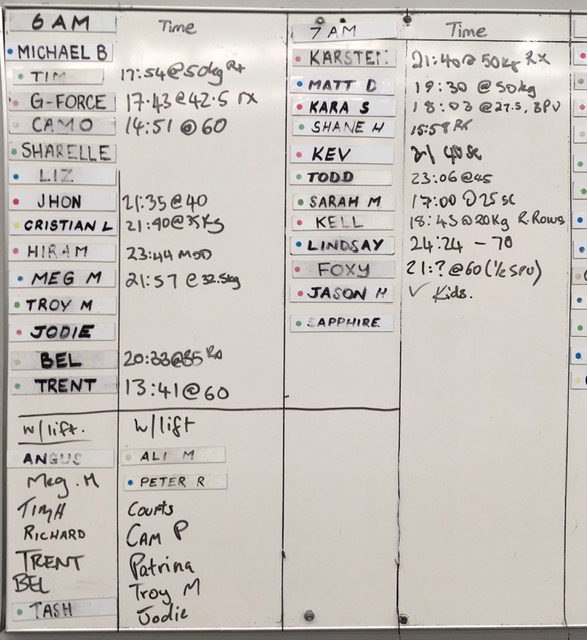 6 AM Time
MICHAEL B
TIM 17:54@50kg Rx
G-FORCE 17.43@42.5 rx
CAMO 14:51 @60
SHARELLE
LIZ
JHON 21:35@40
CRISTIAN L 21:40@35kg
HIRAM 23:44 MOD
MEG M 21:57 @32.5kg
TROY M
JODIE
BEL 20:33@35 Rx
TRENT 13:41@60
w/lift. w/lift
ANGUS ALI M
Meg. M PETER R
Tim H Courts
RICHARD CAM P
TRENT Patrina
BEL Troy M
TASH Jodie
7 AM Time
KARSTEN 21:40@50kg Rx
MATT D 19:30 @50kg
KARA S 18:03 @27.5, BPU
SHANE H 15:58 Rx
KEV 21 40
TODD 23:06@45
SARAH M 17:00 @25 sc
KELL 18:43@20kg R.Rows
LINDSAY 24:24 - 70
FOXY 21:?@60 (½ SPU)
JASON H ✓ Kids.
SAPPHIRE